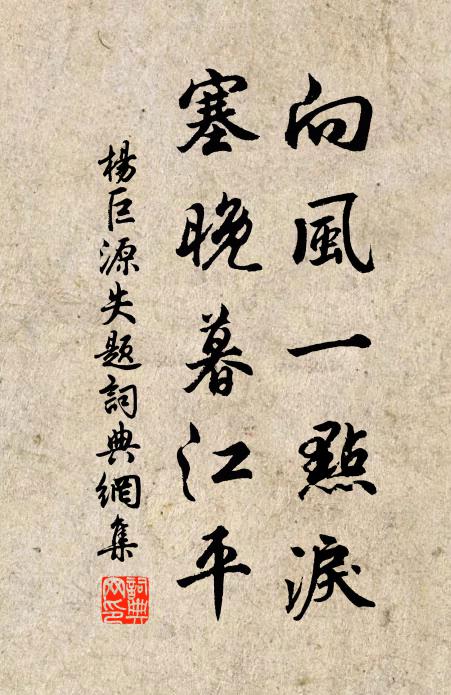 向風一點淚
塞晚暮江平
楊巨源失題詞典網集
詞典網印